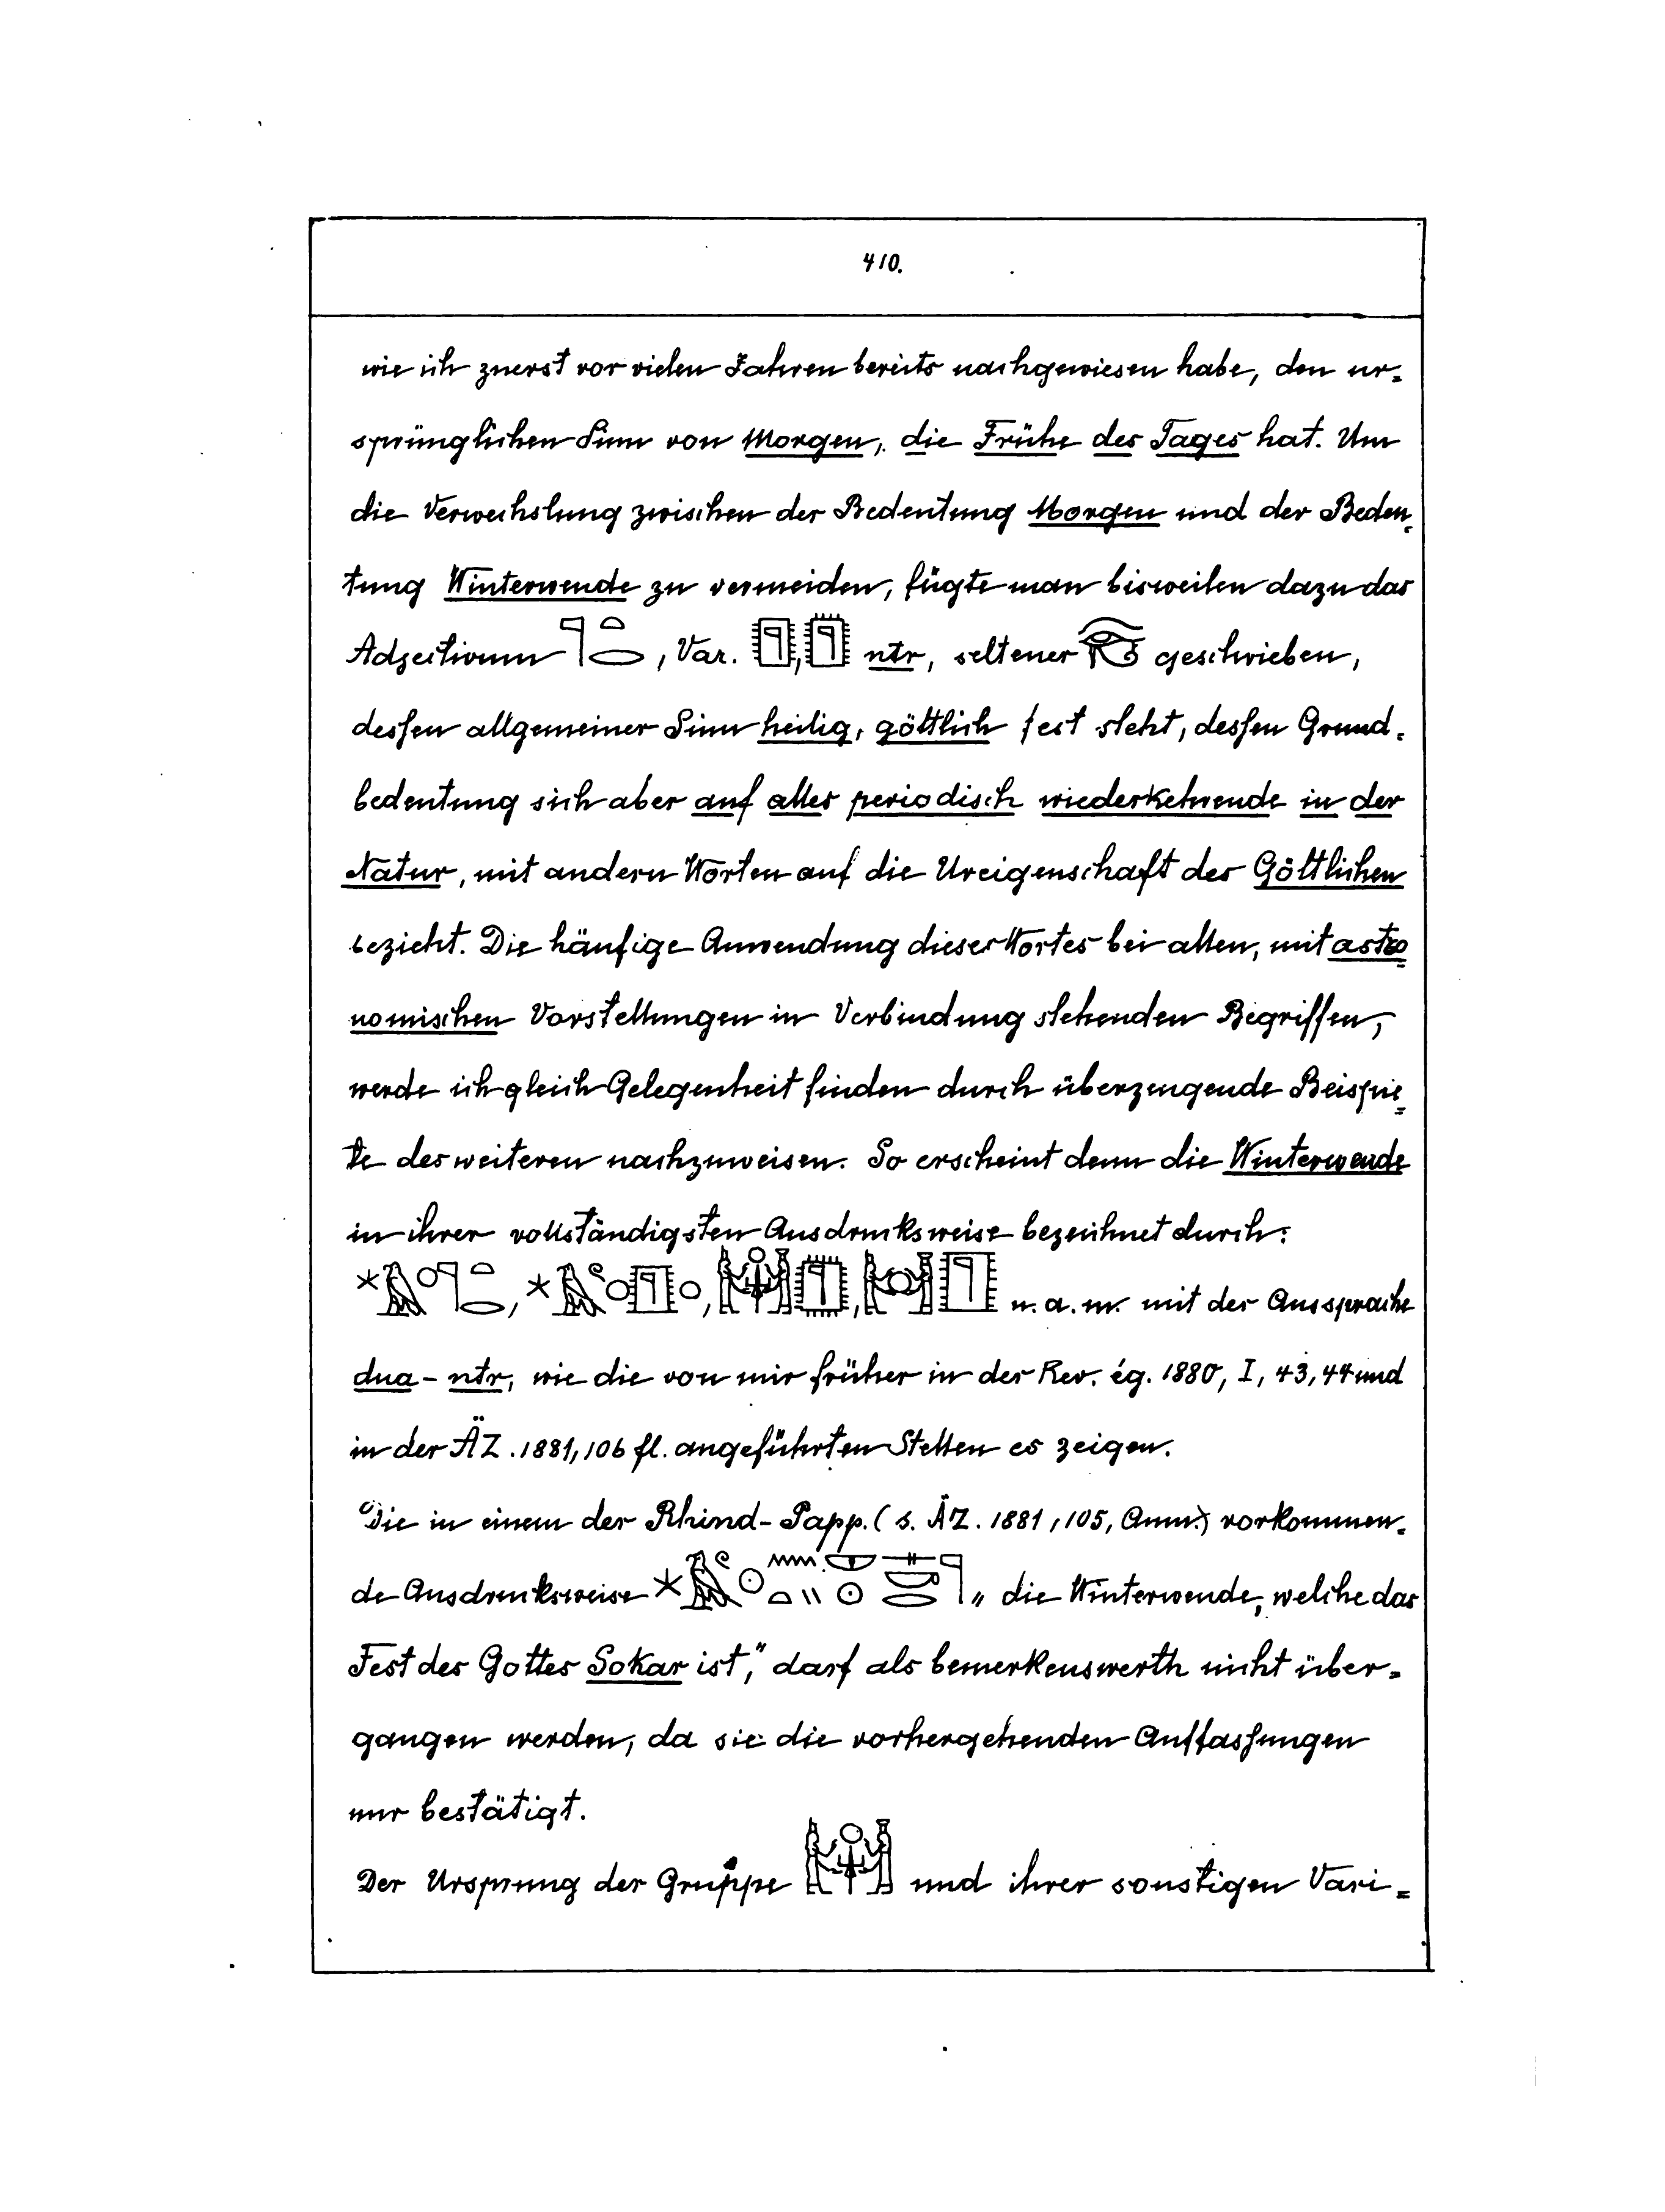 410.
wie ich zuerst vor vielen Jahren bereits nachgewiesen habe, den ur=
sprünglichen Sinn von Morgen, die Frühe des Tages hat. Um
die Verwechslung zwischen der Bedeutung Morgen und der Bedeu=
tung Winterwende zu vermeiden, fügte man bisweilen dazu das
Adjectivum , Var. , ntr, seltener geschrieben,
dessen allgemeiner Sinn heilig, göttlich fest steht, dessen Grund=
bedeutung sich aber auf alles periodisch wiederkehrende in der
Natur, mit andern Worten auf die Ureigenschaft des Göttlichen
bezieht. Die häufige Anwendung dieses Wortes bei allen, mit astro=
nomischen Vorstellungen in Verbindung stehenden Begriffen,
werde ich gleich Gelegenheit finden durch überzeugende Beispie=
le des weiteren nachzuweisen. So erscheint denn die Winterwende
in ihrer vollständigsten Ausdrucksweise bezeichnet durch:
, , , u. a. m. mit der Aussprache
dua-ntr, wie die von mir früher in der Rev. ég. 1880, I, 43, 44 und
in der ÄZ. 1881, 106 fl. angeführten Stellen es zeigen.
Die in einem der Rhind-Papp. (s. ÄZ. 1881, 105, Anm.) vorkommen=
de Ausdrucksweise „ die Winterwende, welche das
Fest des Gottes Sokar ist," darf als bemerkenswerth nicht über=
gangen werden, da sie die vorhergehenden Auffassungen
nur bestätigt.
Der Ursprung der Gruppe und ihrer sonstigen Vari=